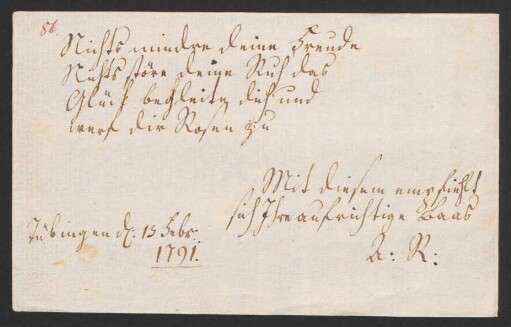 56.
Nichts mindre deine Freude
Nichts störe deine Ruh das
Glück begleite dich und
werf dir Rosen zu
Mit diesem empfiehlt
sich Ihre aufrichtige Baas
Tübingen d: 15 Febr:
1791.
A: R: